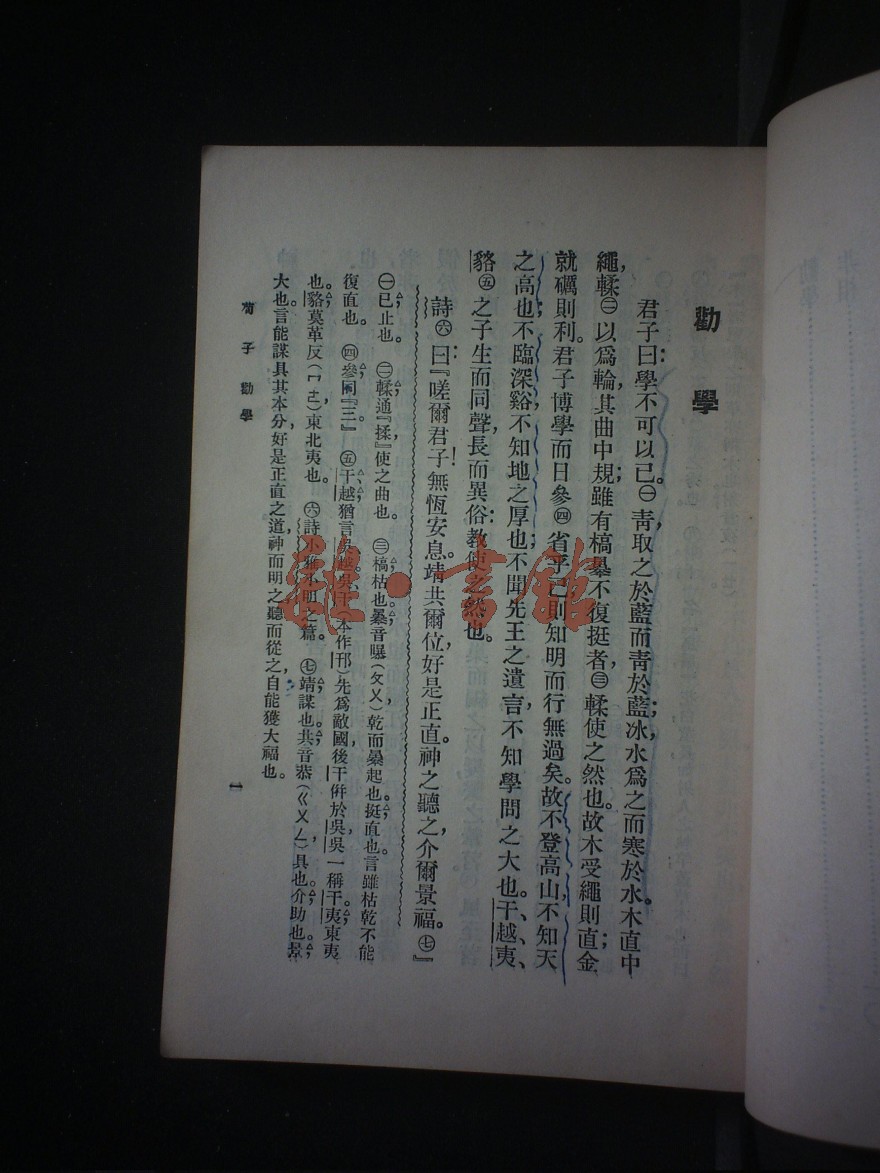 勸學
君子曰：學不可以已。㊀青，取之於藍而青於藍；冰，水爲之而寒於水。木直中
繩，輮㊁以爲輪，其曲中規；雖有槁暴不復挺者，㊂輮使之然也。故木受繩則直；金
就礪則利。君子博學而日參㊃省乎己，則知明而行無過矣。故不登高山，不知天
之高也；不臨深谿，不知地之厚也；不聞先王之遺言，不知學問之大也。干、越、夷、
貉㊄之子，生而同聲，長而異俗：教使之然也。
詩㊅曰：『嗟爾君子！無恆安息。靖共爾位，好是正直。神之聽之，介爾景福。㊆』
㊀已，止也。㊁輮，通『揉，』使之曲也。㊂槁，枯也。暴，音曝（ㄆㄨ），乾而暴起也。挺，直也。言雖枯乾不能
復直也。㊃參，同『三。』㊄干、越，猶言吳越。吳干（本作邗）先爲敵國，後干併於吳，吳一稱干。夷，東夷
也。貉，莫革反（ㄇㄜ），東北夷也。㊅詩小雅小明之篇。㊆靖，謀也。共，音恭（ㄍㄨㄥ），具也。介，助也。景，
大也。言能謀具其本分，好是正直之道，神而明之，聽而從之，自能獲大福也。
荀子 勸學
一
雜·書館